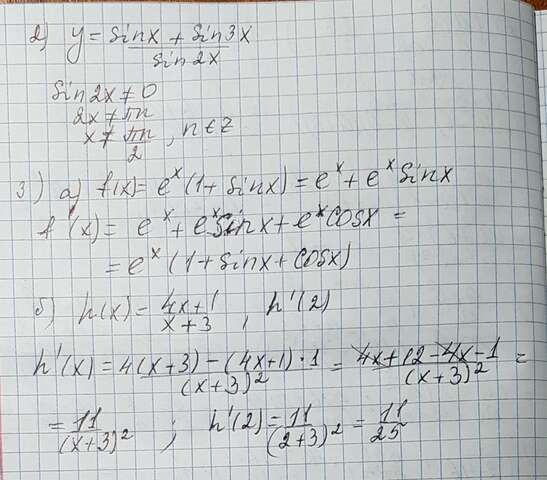 2) y = sinx + sin3x / sin2x
sin2x ≠ 0
2x ≠ πn
x ≠ πn/2, n ∈ Z
3) а) f(x) = e^x(1 + sinx) = e^x + e^x sinx
f'(x) = e^x + e^x sinx + e^x cosx =
= e^x (1 + sinx + cosx)
б) h(x) = 4x+1 / x+3 , h'(2)
h'(x) = 4(x+3) - (4x+1)·1 / (x+3)^2 = 4x+12-4x-1 / (x+3)^2 =
= 11 / (x+3)^2 ; h'(2) = 11 / (2+3)^2 = 11/25